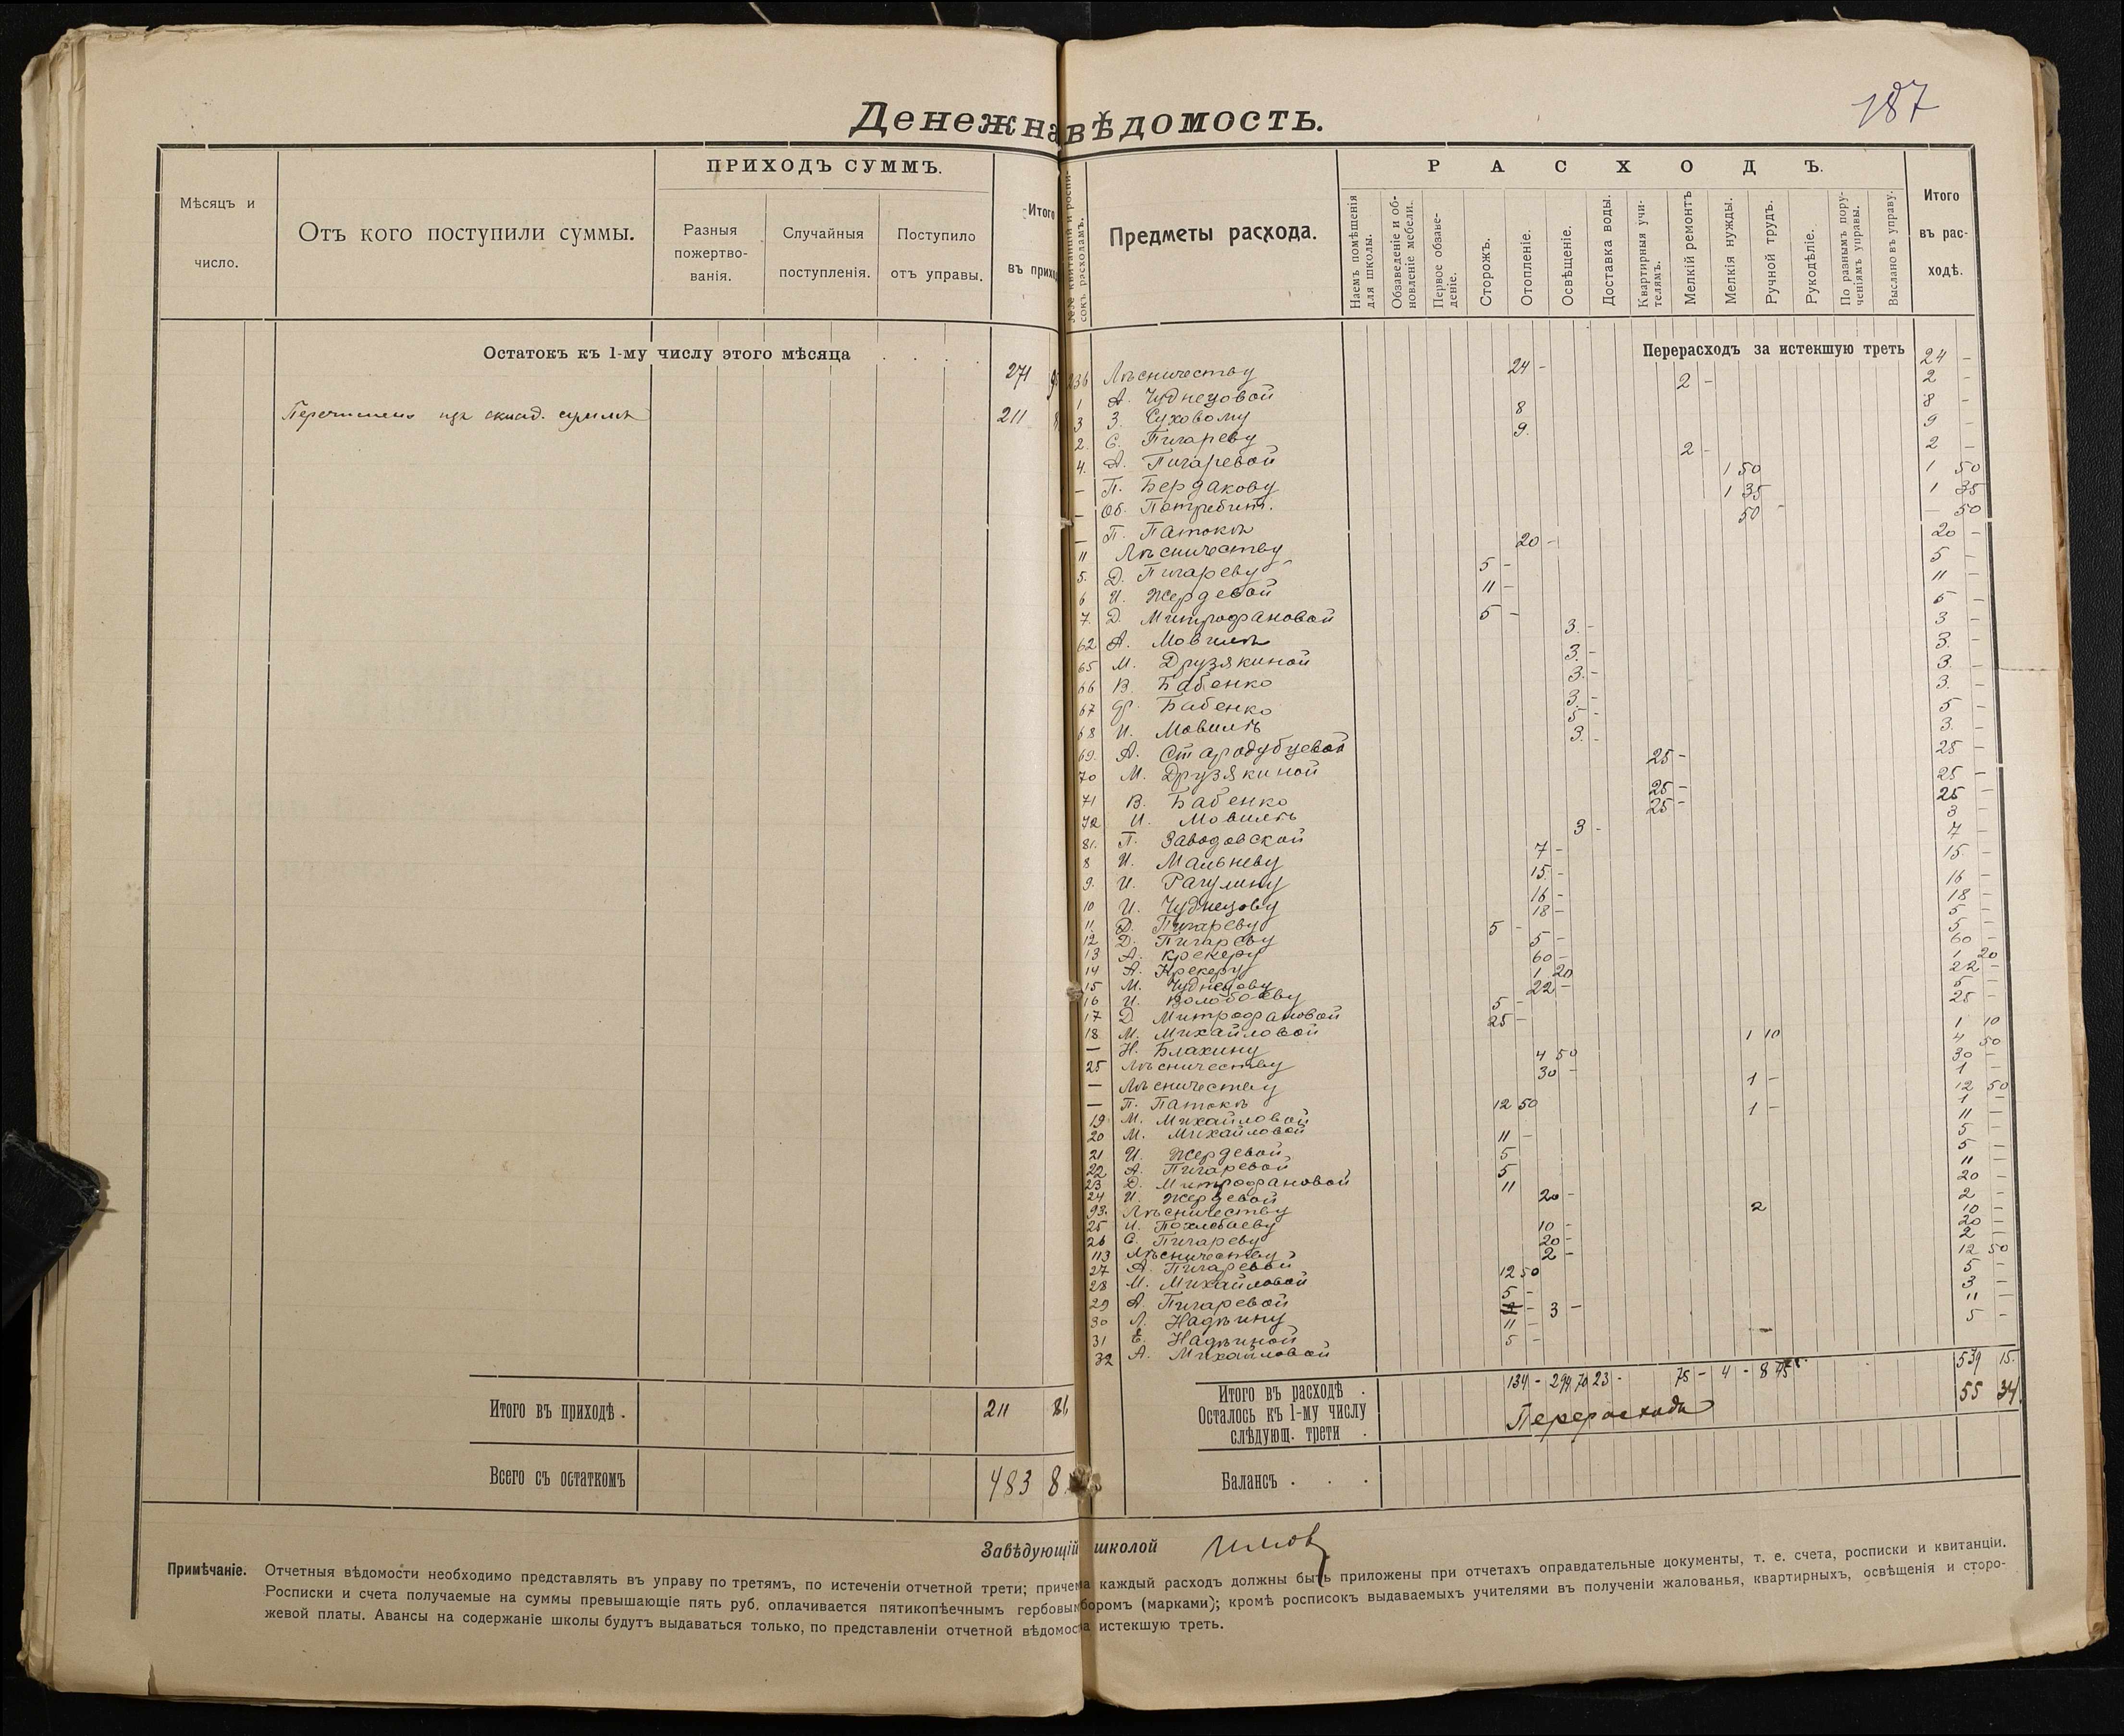 187
Денежна вѣдомость.
Мѣсяцъ и число.
Отъ кого поступили суммы.
ПРИХОДЪ СУММЪ.
Разныя пожертво-
ванія.
Случайныя
поступленія.
Поступило
отъ управы.
Итого
въ прихо
Остатокъ къ 1-му числу этого мѣсяца
271
211
Итого въ приходѣ. 211 81
Всего съ остаткомъ 483 8
квитанцій и роспи-
сокъ расходамъ.
Предметы расхода.
РАСХОДЪ.
Наемъ помѣщенія
для школы.
Обзаведеніе и об-
новленіе мебели.
Первое обзаве-
деніе.
Сторожъ.
Отопленіе.
Освѣщеніе.
Доставка воды.
Квартирныя учи-
телямъ.
Мелкій ремонтъ
Мелкія нужды.
Ручной трудъ.
Рукодѣліе.
По разнымъ пору-
ченіямъ управы.
Выслано въ управу.
Итого
въ рас-
ходѣ.
Перерасходъ за истекшую треть
236 Лѣсничеству 24 - 24 -
1 А. Чуднецовой 2 - 2 -
3 З. Суховому 8 8 -
2. С. Пигареву 9. 9 -
4. А. Пигаревой 2 - 2 -
— П. Бердакову 1 50 1 50
— Об. Потребит. 1 35 1 35
— П. Патокѣ 50 - — 50
11 Лѣсничеству 20 - 20 -
5. Д. Пигареву 5 - 5 -
6 И. Жердевой 11 - 11 -
7. Д. Митрофановой 5 - 5 -
62 А. Мовилѣ 3. - 3 -
65 М. Друзякиной 3. - 3. -
66 В. Бабенко 3. - 3. -
67 Ф. Бабенко 3. - 3. -
68 И. Мовилѣ 5 - 5 -
69. А. Стародубцевой 3. - 3. -
70 М. Друзякиной 25 - 25 -
71 В. Бабенко 25 - 25 -
72 И. Мовилѣ 25 - 25 -
81. П. Заводовской 3 - 3 -
8 И. Мальневу 7 - 7 -
9. И. Рагулину 15 - 15 -
10 И. Чуднецову 16 - 16 -
11. Д. Пигареву 18 - 18 -
12 Д. Пигареву 5 - 5 -
13 А. Крекеру 5 - 5 -
14 А. Крекеру 60 - 60 -
15 М. Чуднецову 1 20 1 20
16 И. Волобоеву 22 - 22 -
17 Д. Митрофановой 5 - 5 -
18 М. Михайловой 25 - 25 -
— Н. Блахину 1 10 1 10
25 Лѣсничеству 4 50 4 50
— Лѣсничеству 30 - 30 -
— П. Патокѣ 1 - 1 -
19 М. Михайловой 12 50 12 50
20 М. Михайловой 1 - 1 -
21 И. Жердевой 11 - 11 -
22 А. Пигаревой 5 5 -
23 Д. Митрофановой 5 5 -
24 И. Жердевой 11 11 -
93. Лѣсничеству 20 - 20 -
25 И. Похлебаеву 2 2 -
26 С. Пигареву 10 - 10 -
113 Лѣсничеству 20 - 20 -
27 А. Пигаревой 2 - 2 -
28 М. Михайловой 12 50 12 50
29 А. Пигаревой 5 - 5 -
30 Л. Надѣину 3 - 3 -
31 Е. Надѣиной 11 - 11 -
32 А. Михайловой 5 - 5 -
Итого въ расходѣ . 134 - 294 70 23 - 75 - 4 - 8 45 539 15.
Осталось къ 1-му числу
слѣдующ. трети . Перерасходъ 55 34
Балансъ . . .
Завѣдующій школой
Примѣчаніе. Отчетныя вѣдомости необходимо представлять въ управу по третямъ, по истеченіи отчетной трети; причем каждый расходъ должны быть приложены при отчетахъ оправдательные документы, т. е. счета, росписки и квитанціи.
Росписки и счета получаемые на суммы превышающіе пять руб. оплачивается пятикопѣечнымъ гербовым боромъ (марками); кромѣ росписокъ выдаваемыхъ учителями въ полученіи жалованья, квартирныхъ, освѣщенія и сторо-
жевой платы. Авансы на содержаніе школы будутъ выдаваться только, по представленіи отчетной вѣдомост а истекшую треть.